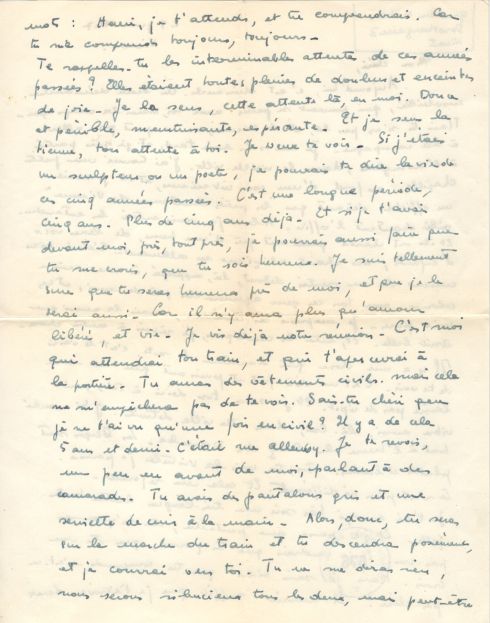 mot : Henri, je t'attends, et tu comprendrais. Car
tu me comprends toujours, toujours -
Te rappelles-tu les interminables attentes de ces années
passées ? Elles étaient toutes pleines de douleur et enceintes
de joie - Je la sens, cette attente là, en moi. Douce
et pénible, meurtrissante, espérante - Et je sens la
tienne, ton attente à toi. Je veux te voir - Si j'étais
un sculpteur ou un poète, je pourrais te dire la vie de
ces cinq années passées. C'est une longue période,
cinq ans. Plus de cinq ans déjà - Et si je t'avais
devant moi, près, tout près, je pourrais aussi faire que
tu me crois, que tu sois heureux. Je suis tellement
sûre que tu seras heureux près de moi, et que je le
serai aussi - Car il n'y aura plus qu'amour
libéré, et vie - Je vis déjà notre réunion - C'est moi
qui attendrai ton train, et qui t'apercevrai à
la portière - Tu auras des vêtements civils. mais cela
ne m'empêchera pas de te voir. Sais-tu chéri que
je ne t'ai vu qu'une fois en civil ? Il y a de cela
5 ans et demi - C'était rue allenby. Je te revois,
un peu en avant de moi, parlant à des
camarades - Tu avais des pantalons gris et une
serviette de cuir à la main - Alors, donc, tu seras
sur la marche du train et tu descendras posément,
et je courrai vers toi - Tu ne me diras rien,
nous serons silencieux tous les deux, mais peut-être